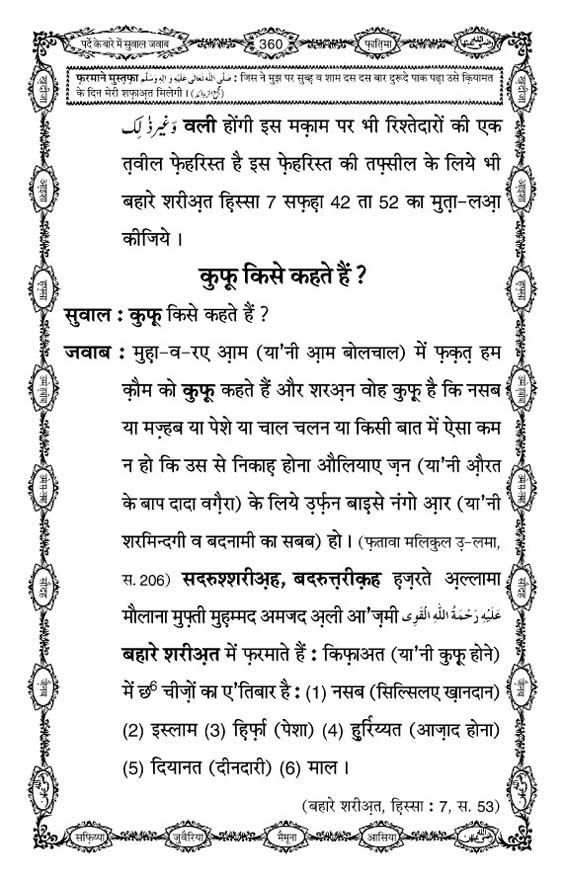 पर्दे के बारे में सुवाल जवाब 360 फ़ातिमा
फ़रमाने मुस्तफ़ा صلى الله تعالى عليه واله وسلم : जिस ने मुझ पर सुब्ह़ व शाम दस दस बार दुरूदे पाक पढ़ा उसे क़ियामत
के दिन मेरी शफ़ाअ़त मिलेगी।
وَغَيْرِذٰلِكَ वली होंगी इस मक़ाम पर भी रिश्तेदारों की एक
त़वील फ़ेहरिस्त है इस फ़ेहरिस्त की तफ़्सील के लिये भी
बहारे शरीअ़त हि़स्सा 7 सफ़ह़ा 42 ता 52 का मुत़ा-लआ़
कीजिये।
कुफ़ू किसे कहते हैं ?
सुवाल : कुफ़ू किसे कहते हैं ?
जवाब : मुह़ा-व-रए आ़म (या'नी आ़म बोलचाल) में फ़क़त़ हम
क़ौम को कुफ़ू कहते हैं और शरअ़न वोह कुफ़ू है कि नसब
या मज़्हब या पेशे या चाल चलन या किसी बात में ऐसा कम
न हो कि उस से निकाह़ होना औलियाए ज़न (या'नी औ़रत
के बाप दादा वग़ैरा) के लिये उ़र्फ़न बाइसे नंगो आ़र (या'नी
शरमिन्दगी व बदनामी का सबब) हो। (फ़तावा मलिकुल उ़-लमा,
स. 206) सदरुश्शरीअ़ह, बदरुत़्त़रीक़ह ह़ज़रते अ़ल्लामा
मौलाना मुफ़्ती मुह़म्मद अमजद अ़ली आ'ज़मी عَلَيْهِ رَحْمَةُ اللّٰهِ الْقَوِى
बहारे शरीअ़त में फ़रमाते हैं : किफ़ाअत (या'नी कुफ़ू होने)
में छ⁶ चीज़ों का ए'तिबार है : (1) नसब (सिल्सिलए ख़ानदान)
(2) इस्लाम (3) हि़र्फ़ा (पेशा) (4) हु़र्रिय्यत (आज़ाद होना)
(5) दियानत (दीनदारी) (6) माल।
(बहारे शरीअ़त, हि़स्सा : 7, स. 53)
सफ़िय्या जुवैरिया मैमूना आसिया